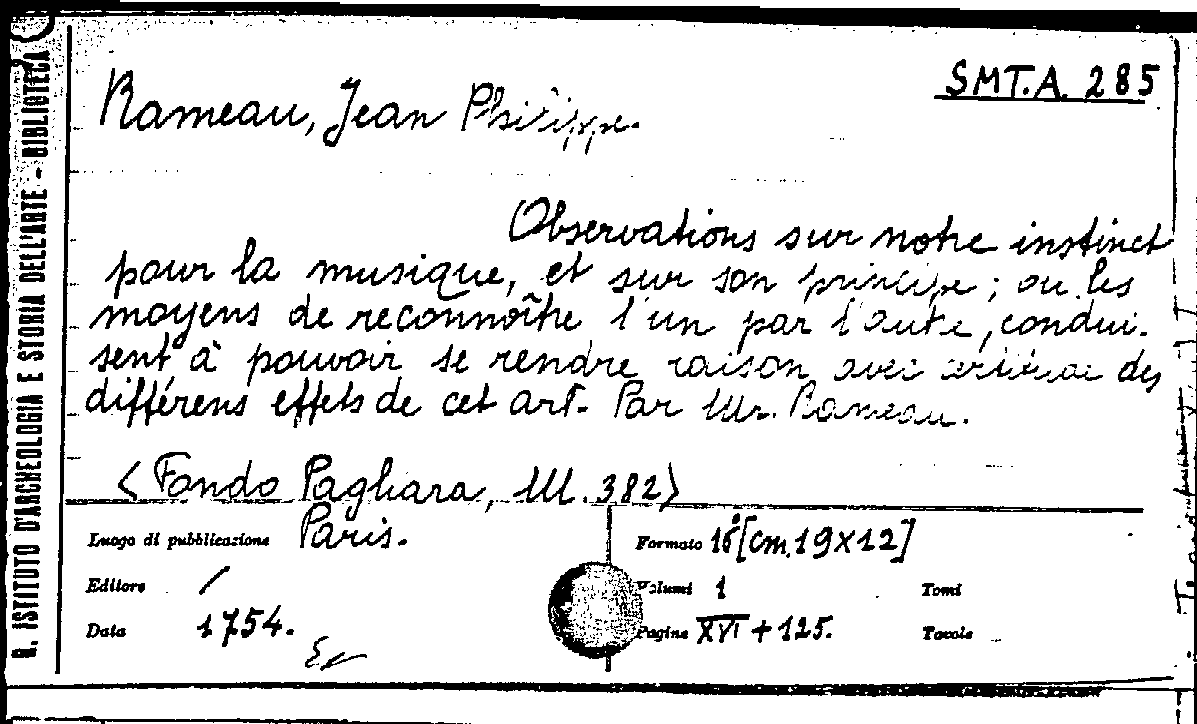 R. ISTITUTO D'ARCHEOLOGIA E STORIA DELL'ARTE - BIBLIOTECA
SMT.A. 285
Rameau, Jean Philippe.
Observations sur notre instinct
pour la musique, et sur son principe; ou les
moyens de reconnoître l'un par l'autre, condui-
sent à pouvoir se rendre raison avec certitude des
différens effets de cet art. Par Mr. Rameau.
<Fondo Pagliara, III. 382>
Luogo di pubblicazione Paris.
Formato 16°[cm.19x12]
Editore /
Volumi 1
Tomi
Data 1754.
Pagine XVI + 125.
Tavole